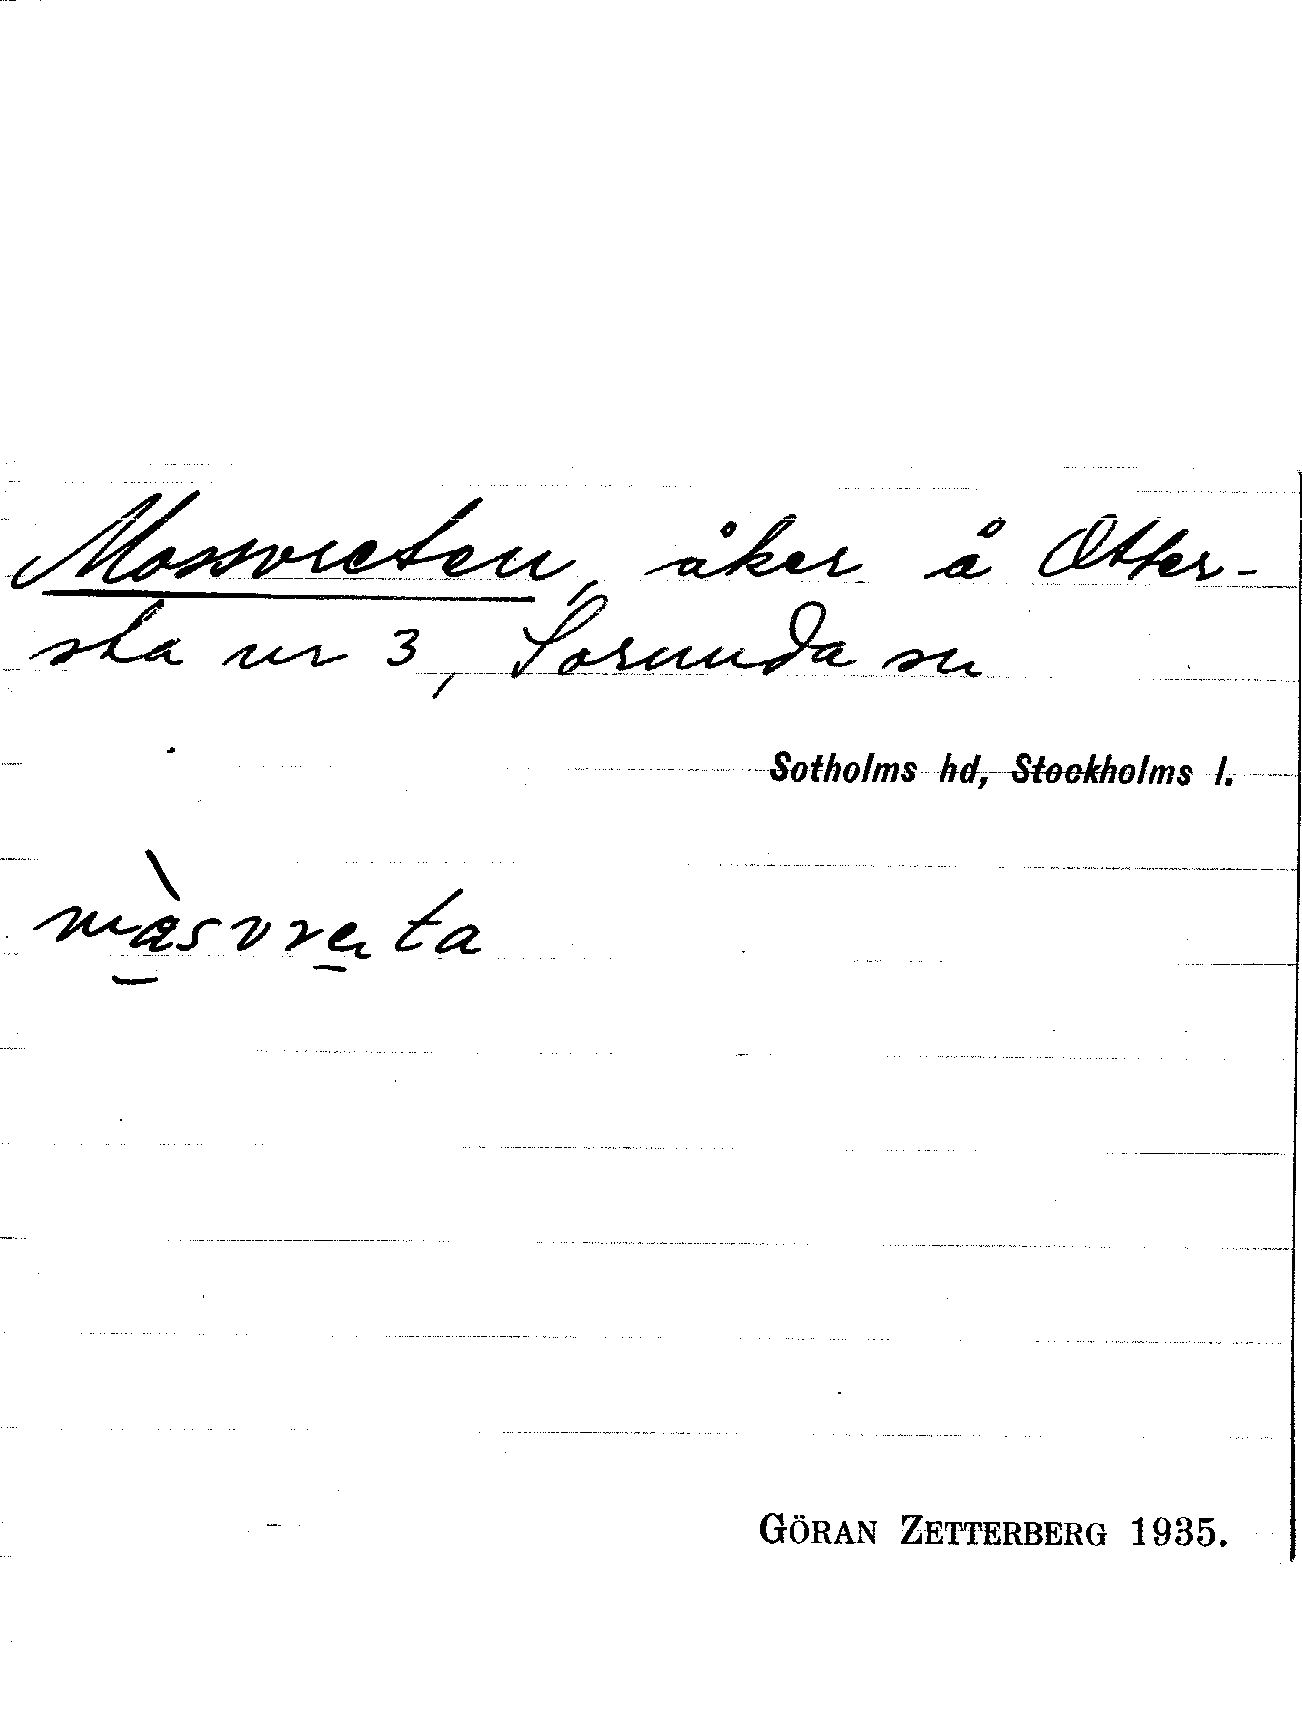 Mossvreten, åker å Otter-
sta nr 3, Sorunda sn
Sotholms hd, Stockholms l.
màsvreta
GÖRAN ZETTERBERG 1935.